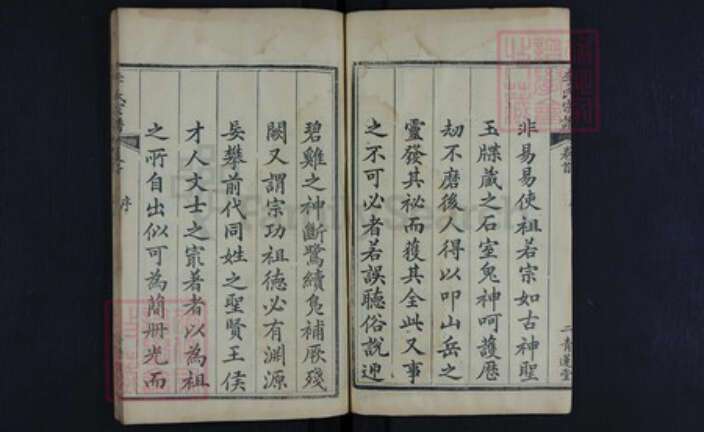 非易易使祖若宗如古神聖
玉牒藏之石室鬼神呵護歷
劫不磨後人得以叩山岳之
靈發其祕而獲其全此又事
之不可必者若誤聽俗說迎
碧雞之神斷鶩續鳧補厥殘
闕又謂宗功祖德必有淵源
吳攀前代同姓之聖賢王侯
才人文士之最著者以為祖
之所自出似可為簡冊光而
卷首
二
青蓮堂
序